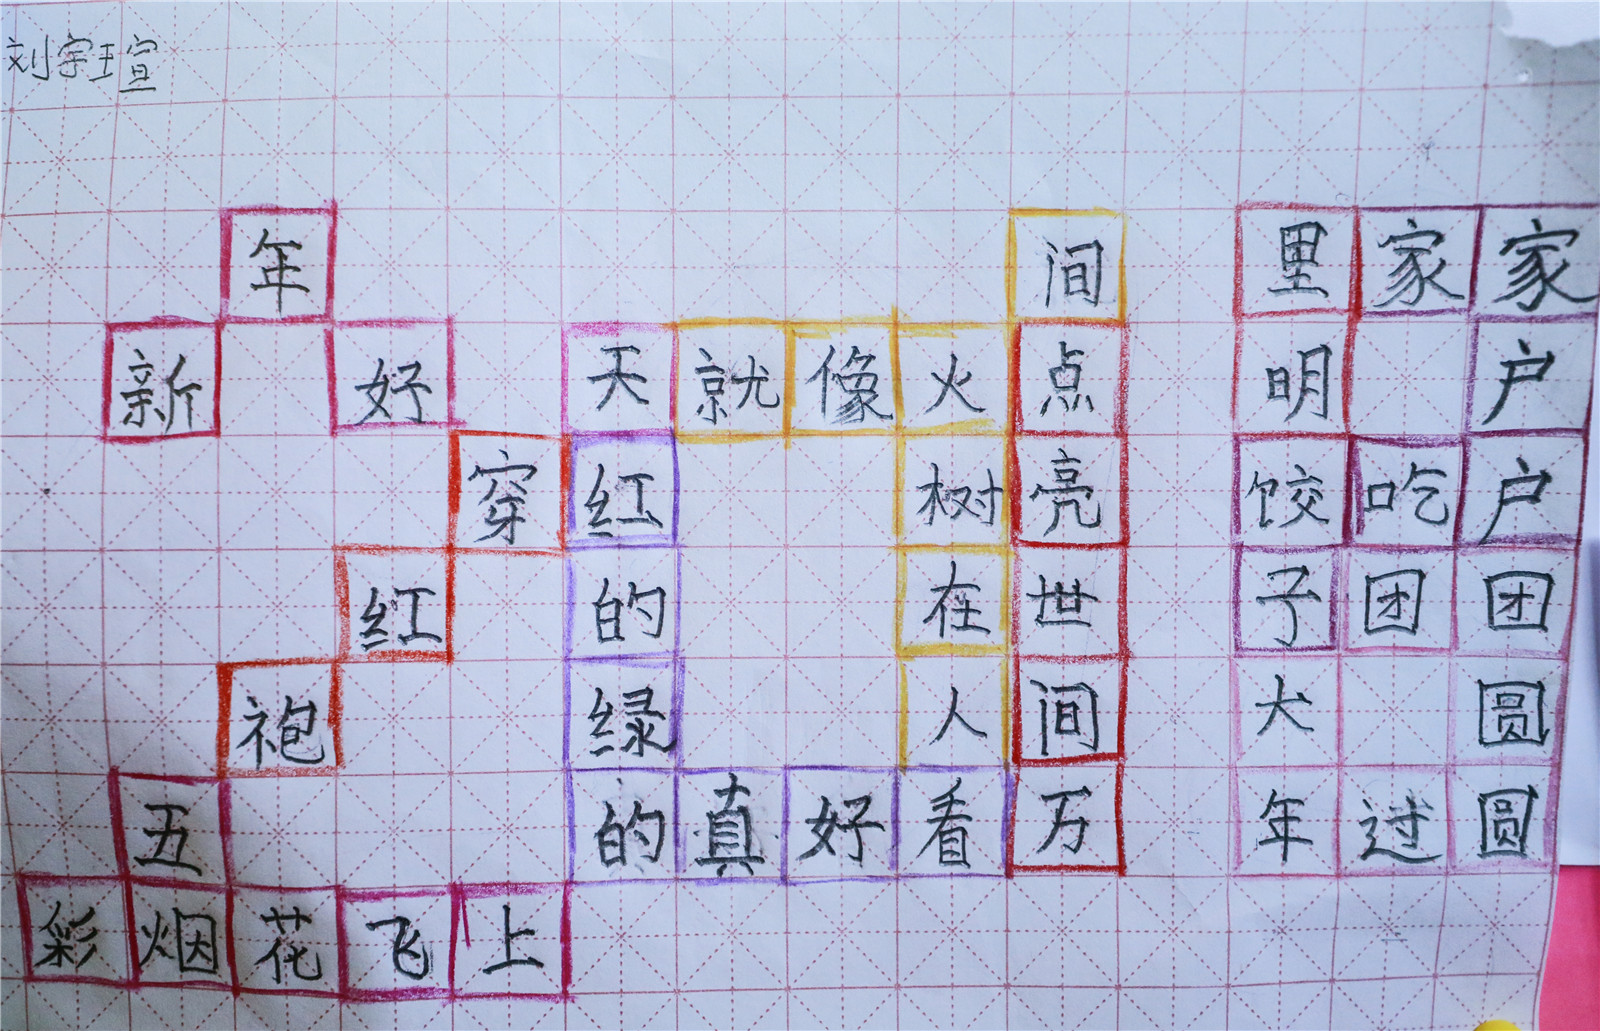 刘宇瑄
年 间 里 家 家
新 好 天 就 像 火 点 明 户
穿 红 树 亮 饺 吃 户
红 的 在 世 子 团 团
袍 绿 人 间 犬 圆
五 的 真 好 看 万 年 过 圆
彩 烟 花 飞 上